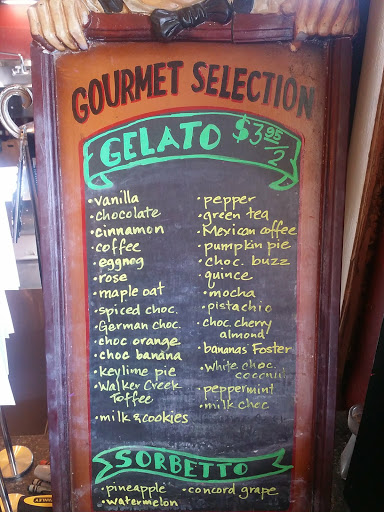 GOURMET SELECTION
GELATO $3.95/2
•vanilla
•chocolate
•cinnamon
•coffee
•eggnog
•rose
•maple oat
•spiced choc.
•German choc.
•choc orange
•choc banana
•keylime pie
•Walker Creek
Toffee
•milk & cookies
•pepper
•green tea
•Mexican coffee
•pumpkin pie
•choc. buzz
•quince
•mocha
•pistachio
•choc. cherry
almond
•bananas Foster
•White choc.
coconut
•peppermint
•milk choc
SORBETTO
•pineapple
•watermelon
•concord grape